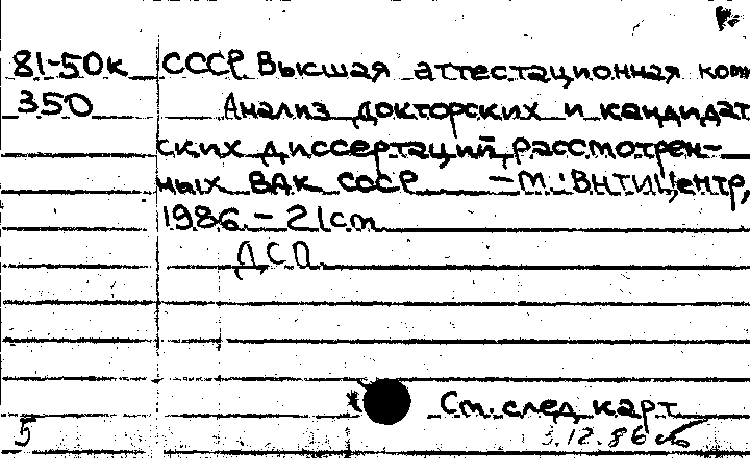 81-50к СССР Высшая аттестационная ком
350 Анализ докторских и кандидат
ских диссертаций, рассмотрен-
ных ВАК СССР - М.: ВНТИЦентр,
1986. - 21cm
ДСП.
См. след карт
5 3.12.86